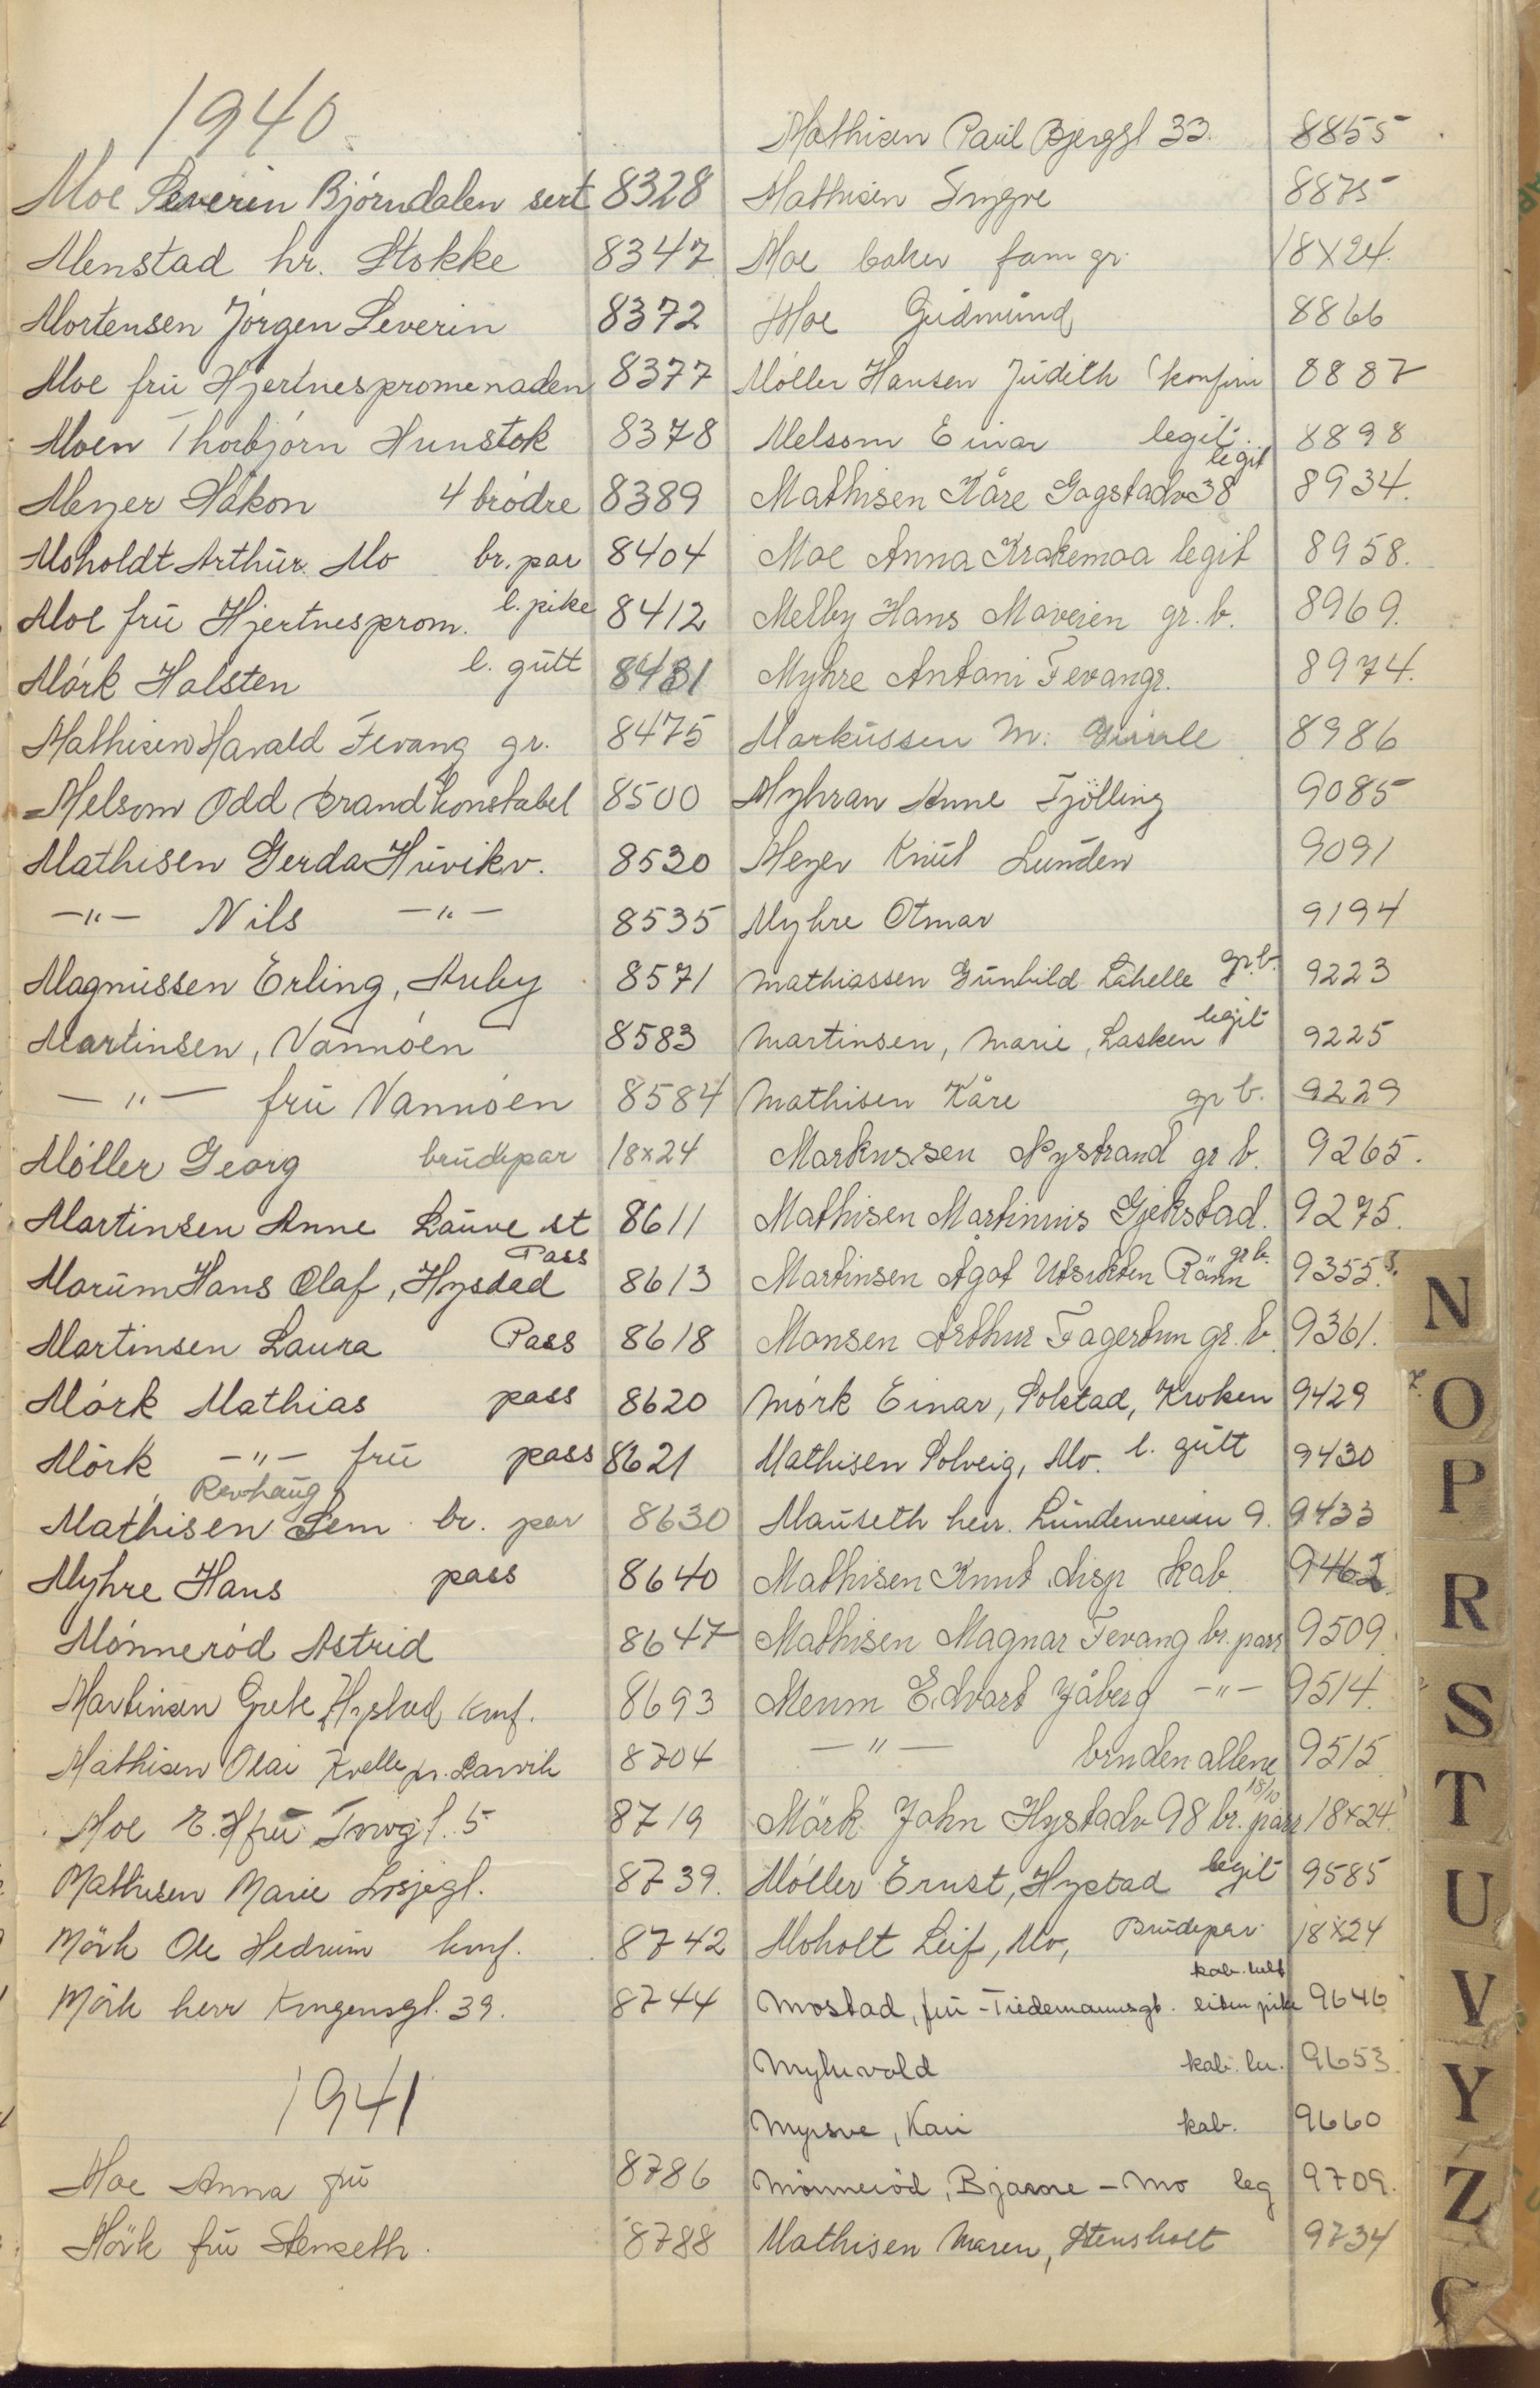 1940.
Moe Severin Bjórndalen sert 8328
Menstad hr. Stokke 8347
Mortensen Jórgen Severin 8372
Moe frū Hjertnespromenaden 8377
Moen Thorbjórn Hunstok 8378
Meyer Håkon 4 bródre 8389
Moholdt Arthūr. Mo br. par 8404
Moe frū Hjertnesprom. l. pike 8412
Mórk Halsten l. gūtt 8431
Mathisen Harald Fevang gr. 8475
Melsom Odd brandkonstabel 8500
Mathisen Gerda Hūvikv. 8530
—"— Nils —"— 8535
Magnūssen Erling, Aūby 8571
Martinsen, Vannóen 8583
—"— frū Vannóen 8584
Móller Georg brūdepar 18x24
Martinsen Anne Laūve st 8611
Marūm Hans Olaf, Hystad Pass 8613
Martinsen Laura Pass 8618
Mórk Mathias pass 8620
Mórk —"— frū pass 8621
Revhaūg
Mathisen Sem br. par 8630
Myhre Hans pass 8640
Mónneród Astrid 8647
Martinsen Grete, Hystad konf. 8693
Mathisen Olai Kvelle pr. Larvik 8704
Moe E. H frū Tnvgt. 5 8719
Mathisen Marie Losjegt. 8739.
Mörk Ole Hedrum konf. 8742
Mörk herr Kongensgt. 39. 8744
1941
Moe Anna frū 8786
Mörk frū Stenseth. 8788
Mathisen Paūl Bjerggt 33. 8855
Mathisen Yngve 8875
Moe baker fam gr. 18X24.
Moe Gūdmūnd 8866
Móller Hansen Jūdith (konfirm 8887
Melsom Einar legit. 8898
Mathisen Kåre Gogstadv 38 legit 8934.
Moe Anna Krakemoa legit 8958.
Melby Hans Moveien gr. b. 8969.
Myhre Antoni Fevang gr. 8974.
Markūssen M. 8986
Myhran Anne Tjölling 9085
Meyer Knūt Lunden 9091
Myhre Otmar 9194
Mathiassen Gūnhild Lahelle gr. b. 9223
Martinsen, Marie, Lasken legit 9225
Mathisen Kåre gr b. 9229
Markussen Nystrand gr b. 9265.
Mathisen Martinius Gjekstad. 9275.
Martinsen Ågot Utsikten Råstn gr b. 9355.
Monsen Arthur Fagertun gr. b. 9361.
Mórk Einar, Solstad, Kroken 9429
Mathisen Solveig, Mo. l. gūtt 9430
Maūseth herr. Lūndenveien 9. 9433
Mathisen Knut disp kab. 9462.
Mathisen Magnar Fevang br. pass 9509.
Merum Edvart Jåberg —"— 9514.
—"— bruden allene 9515
Mörk John Hystadv 98 br. par 18/10 18x24.
Móller Ernst, Hystad legit 9585
Moholt Leif, Mo, Brūdepar 18X24
Mostad, frū - Tiedemannsgt. kab. helt liten pike 9646
Myhrvold kab. 9653.
Myrsve, Kari kab. 9660
Mónneród, Bjarne - Mo leg 9709.
Mathisen Maren, Stensholt 9734
N
O
P
R
S
T
U
V
Y
Z